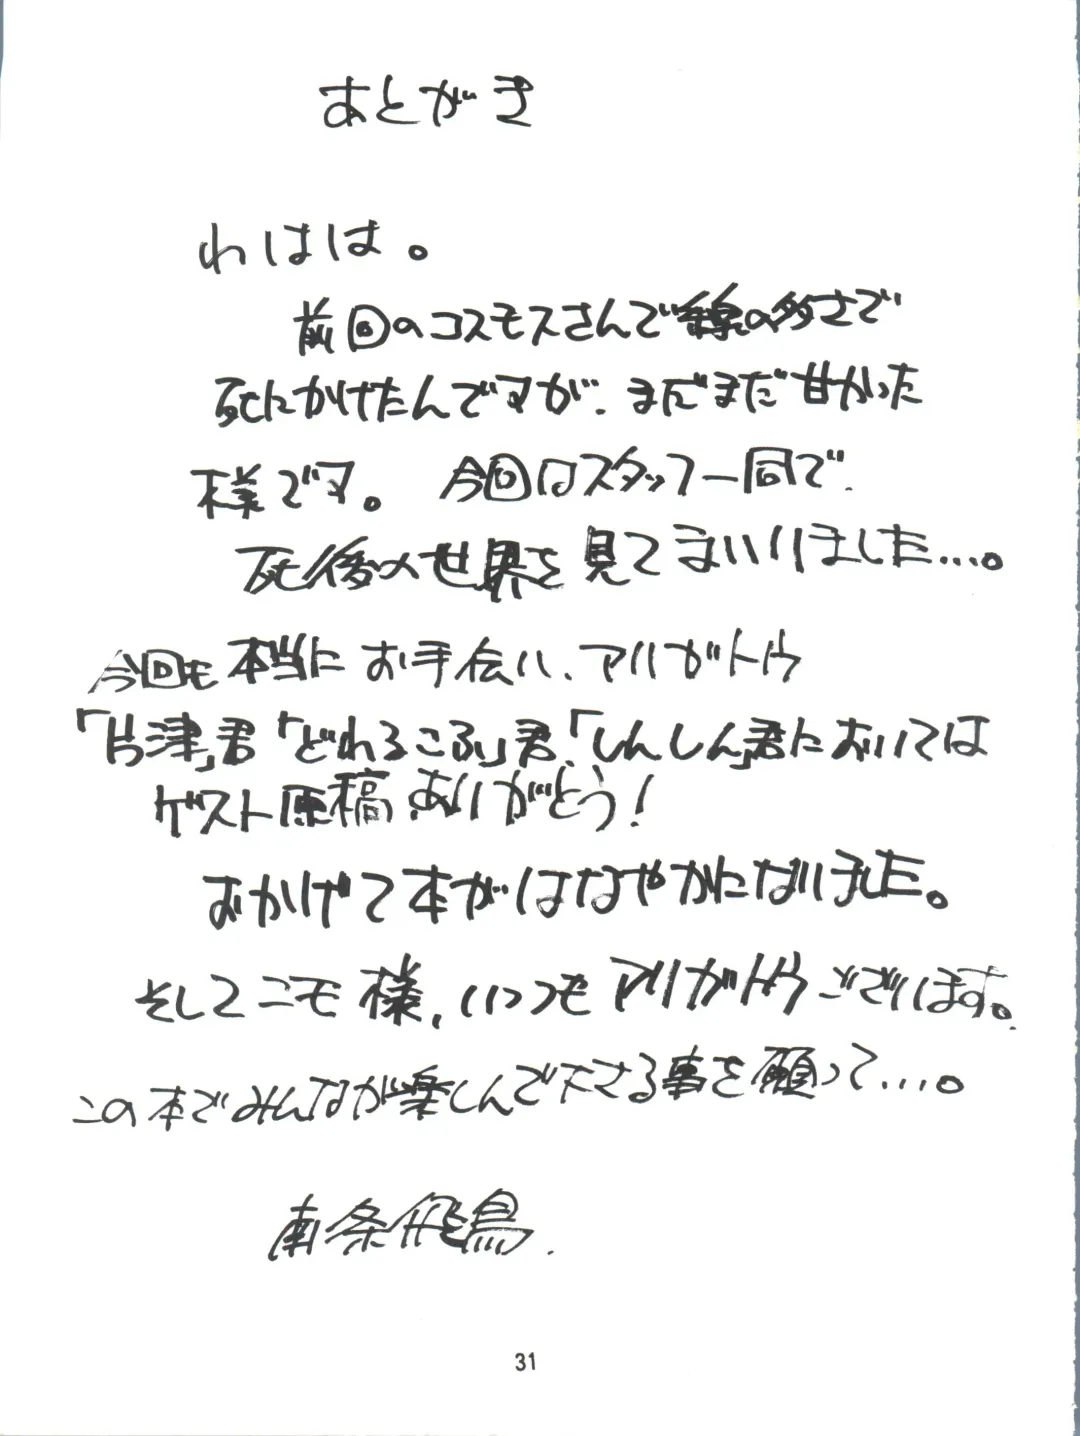 あとがき
わはは。
前回のコスモスさんで線の多さで
死にかけたんですが、まだまだ甘かった
様です。 今回はスタッフ一同で、
死後の世界を見てまいりました…。
今回も本当にお手伝い、アリガトウ
「片津」君「どれるこふ」君、「しんしん」君においては
ゲスト原稿ありがとう!
おかげで本がはなやかになりました。
そしてニモ様、いつもアリガトウございます。
この本でみんなが楽しんで下さる事を願って…。
南条飛鳥.
31